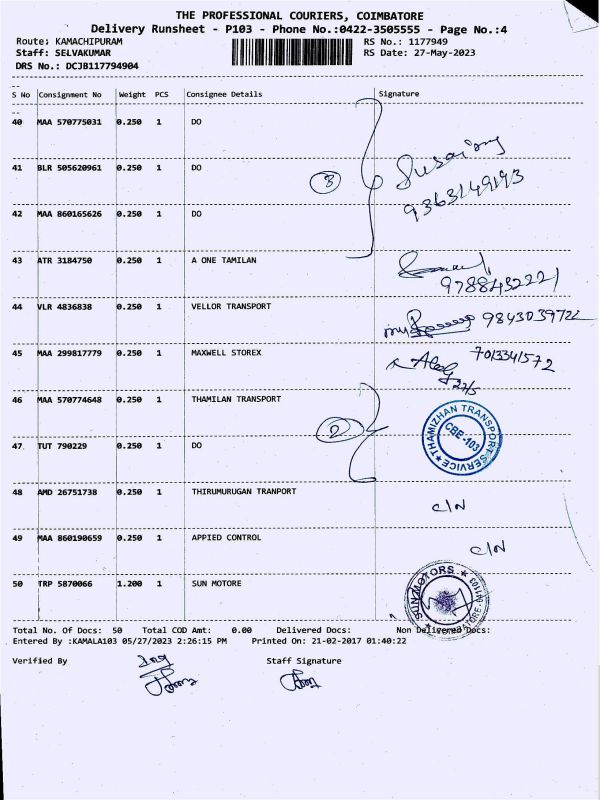 THE PROFESSIONAL COURIERS, COIMBATORE
Delivery Runsheet - P103 - Phone No.:0422-3505555 - Page No.:4
Route: KAMACHIPURAM RS No.: 1177949
Staff: SELVAKUMAR RS Date: 27-May-2023
DRS No.: DCJB117794904
S No Consignment No Weight PCS Consignee Details Signature
40 MAA 570775031 0.250 1 DO
41 BLR 505620961 0.250 1 DO
3
9363149193
42 MAA 860165626 0.250 1 DO
43 ATR 3184750 0.250 1 A ONE TAMILAN
9788432221
44 VLR 4836838 0.250 1 VELLOR TRANSPORT 9843039722
45 MAA 299817779 0.250 1 MAXWELL STOREX 7013341572
27/5
46 MAA 570774648 0.250 1 THAMILAN TRANSPORT
2
THAMIZHAN TRANSPORT SERVICE
CBE-103
47 TUT 790229 0.250 1 DO
48 AMD 26751738 0.250 1 THIRUMURUGAN TRANPORT C/N
49 MAA 860190659 0.250 1 APPIED CONTROL C/N
50 TRP 5870066 1.200 1 SUN MOTORE
SUN MOTORS
Total No. Of Docs: 50 Total COD Amt: 0.00 Delivered Docs: Non Delivered Docs:
Entered By :KAMALA103 05/27/2023 2:26:15 PM Printed On: 21-02-2017 01:40:22
Verified By Staff Signature